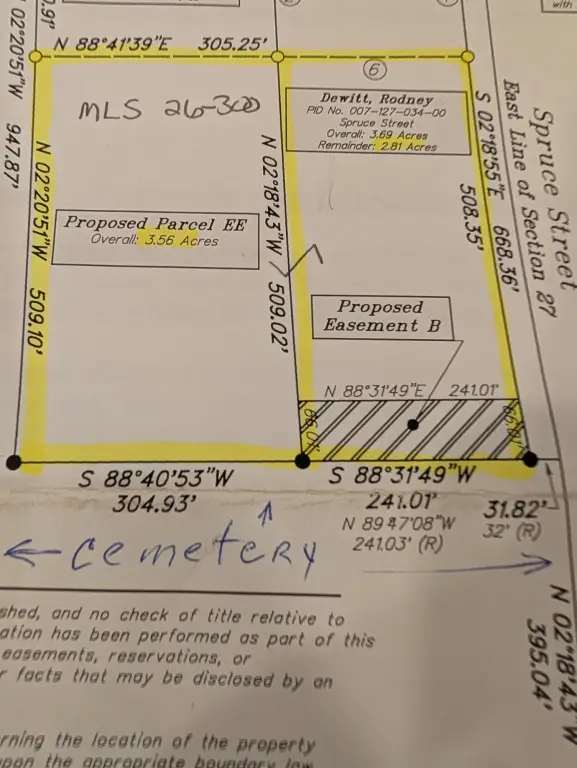 with
N 02°20'51"W 947.87'
0.91'
N 88°41'39"E 305.25'
6
MLS 26-300
Dewitt, Rodney
PID No. 007-127-034-00
Spruce Street
Overall: 3.69 Acres
Remainder: 2.81 Acres
N 02°20'51"W 509.10'
Proposed Parcel EE
Overall: 3.56 Acres
N 02°18'43"W 509.02'
S 02°18'55"E 668.36'
508.35'
East Line of Section 27
Spruce Street
Proposed
Easement B
N 88°31'49"E 241.01'
66.01'
S 88°40'53"W
304.93'
S 88°31'49"W
241.01'
N 89°47'08"W
241.03' (R)
31.82'
32' (R)
← cemetery
N 02°18'43"W
395.04'
shed, and no check of title relative to
ation has been performed as part of this
easements, reservations, or
r facts that may be disclosed by an
rning the location of the property
upon the appropriate boundary law